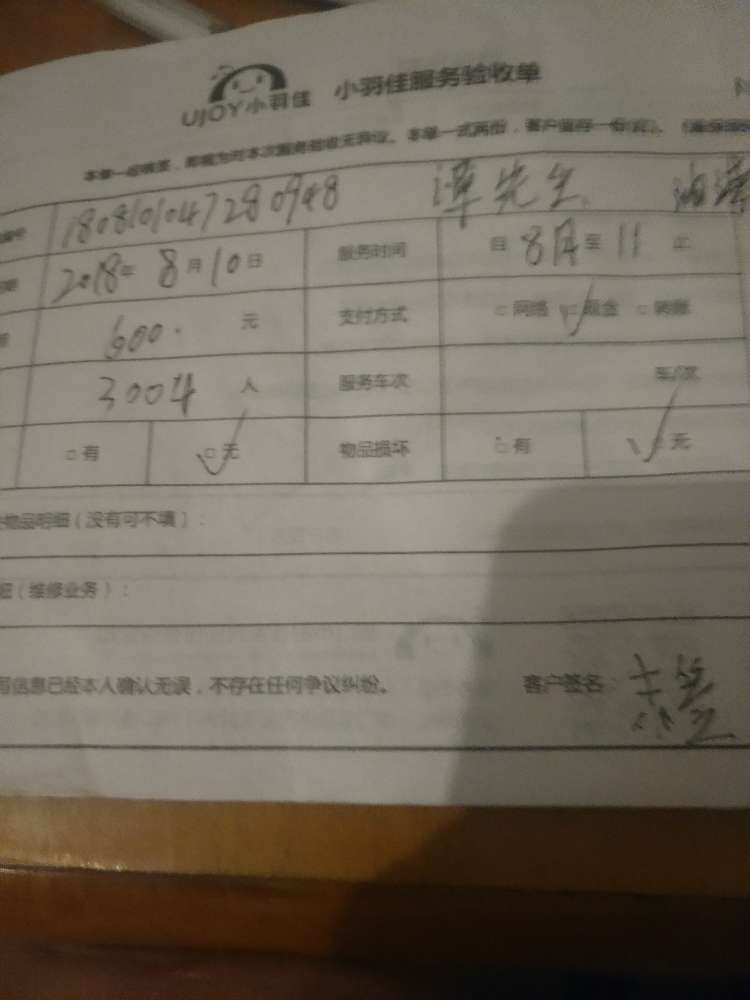 UJOY小羽佳 小羽佳服务验收单
本单一经核签，即视为对本次服务验收无异议。本单一式两份，客户留存一份
180810104728 0948 谭先生
2018年 8月10日 服务时间 自 8点 至 11 止
600. 元 支付方式 □网络 □现金 □转账
3004 人 服务车次 车/次
□有 □无 物品损坏 □有 □无
物品明细（没有可不填）：
（维修业务）：
信息已经本人确认无误，不存在任何争议纠纷。 客户签名